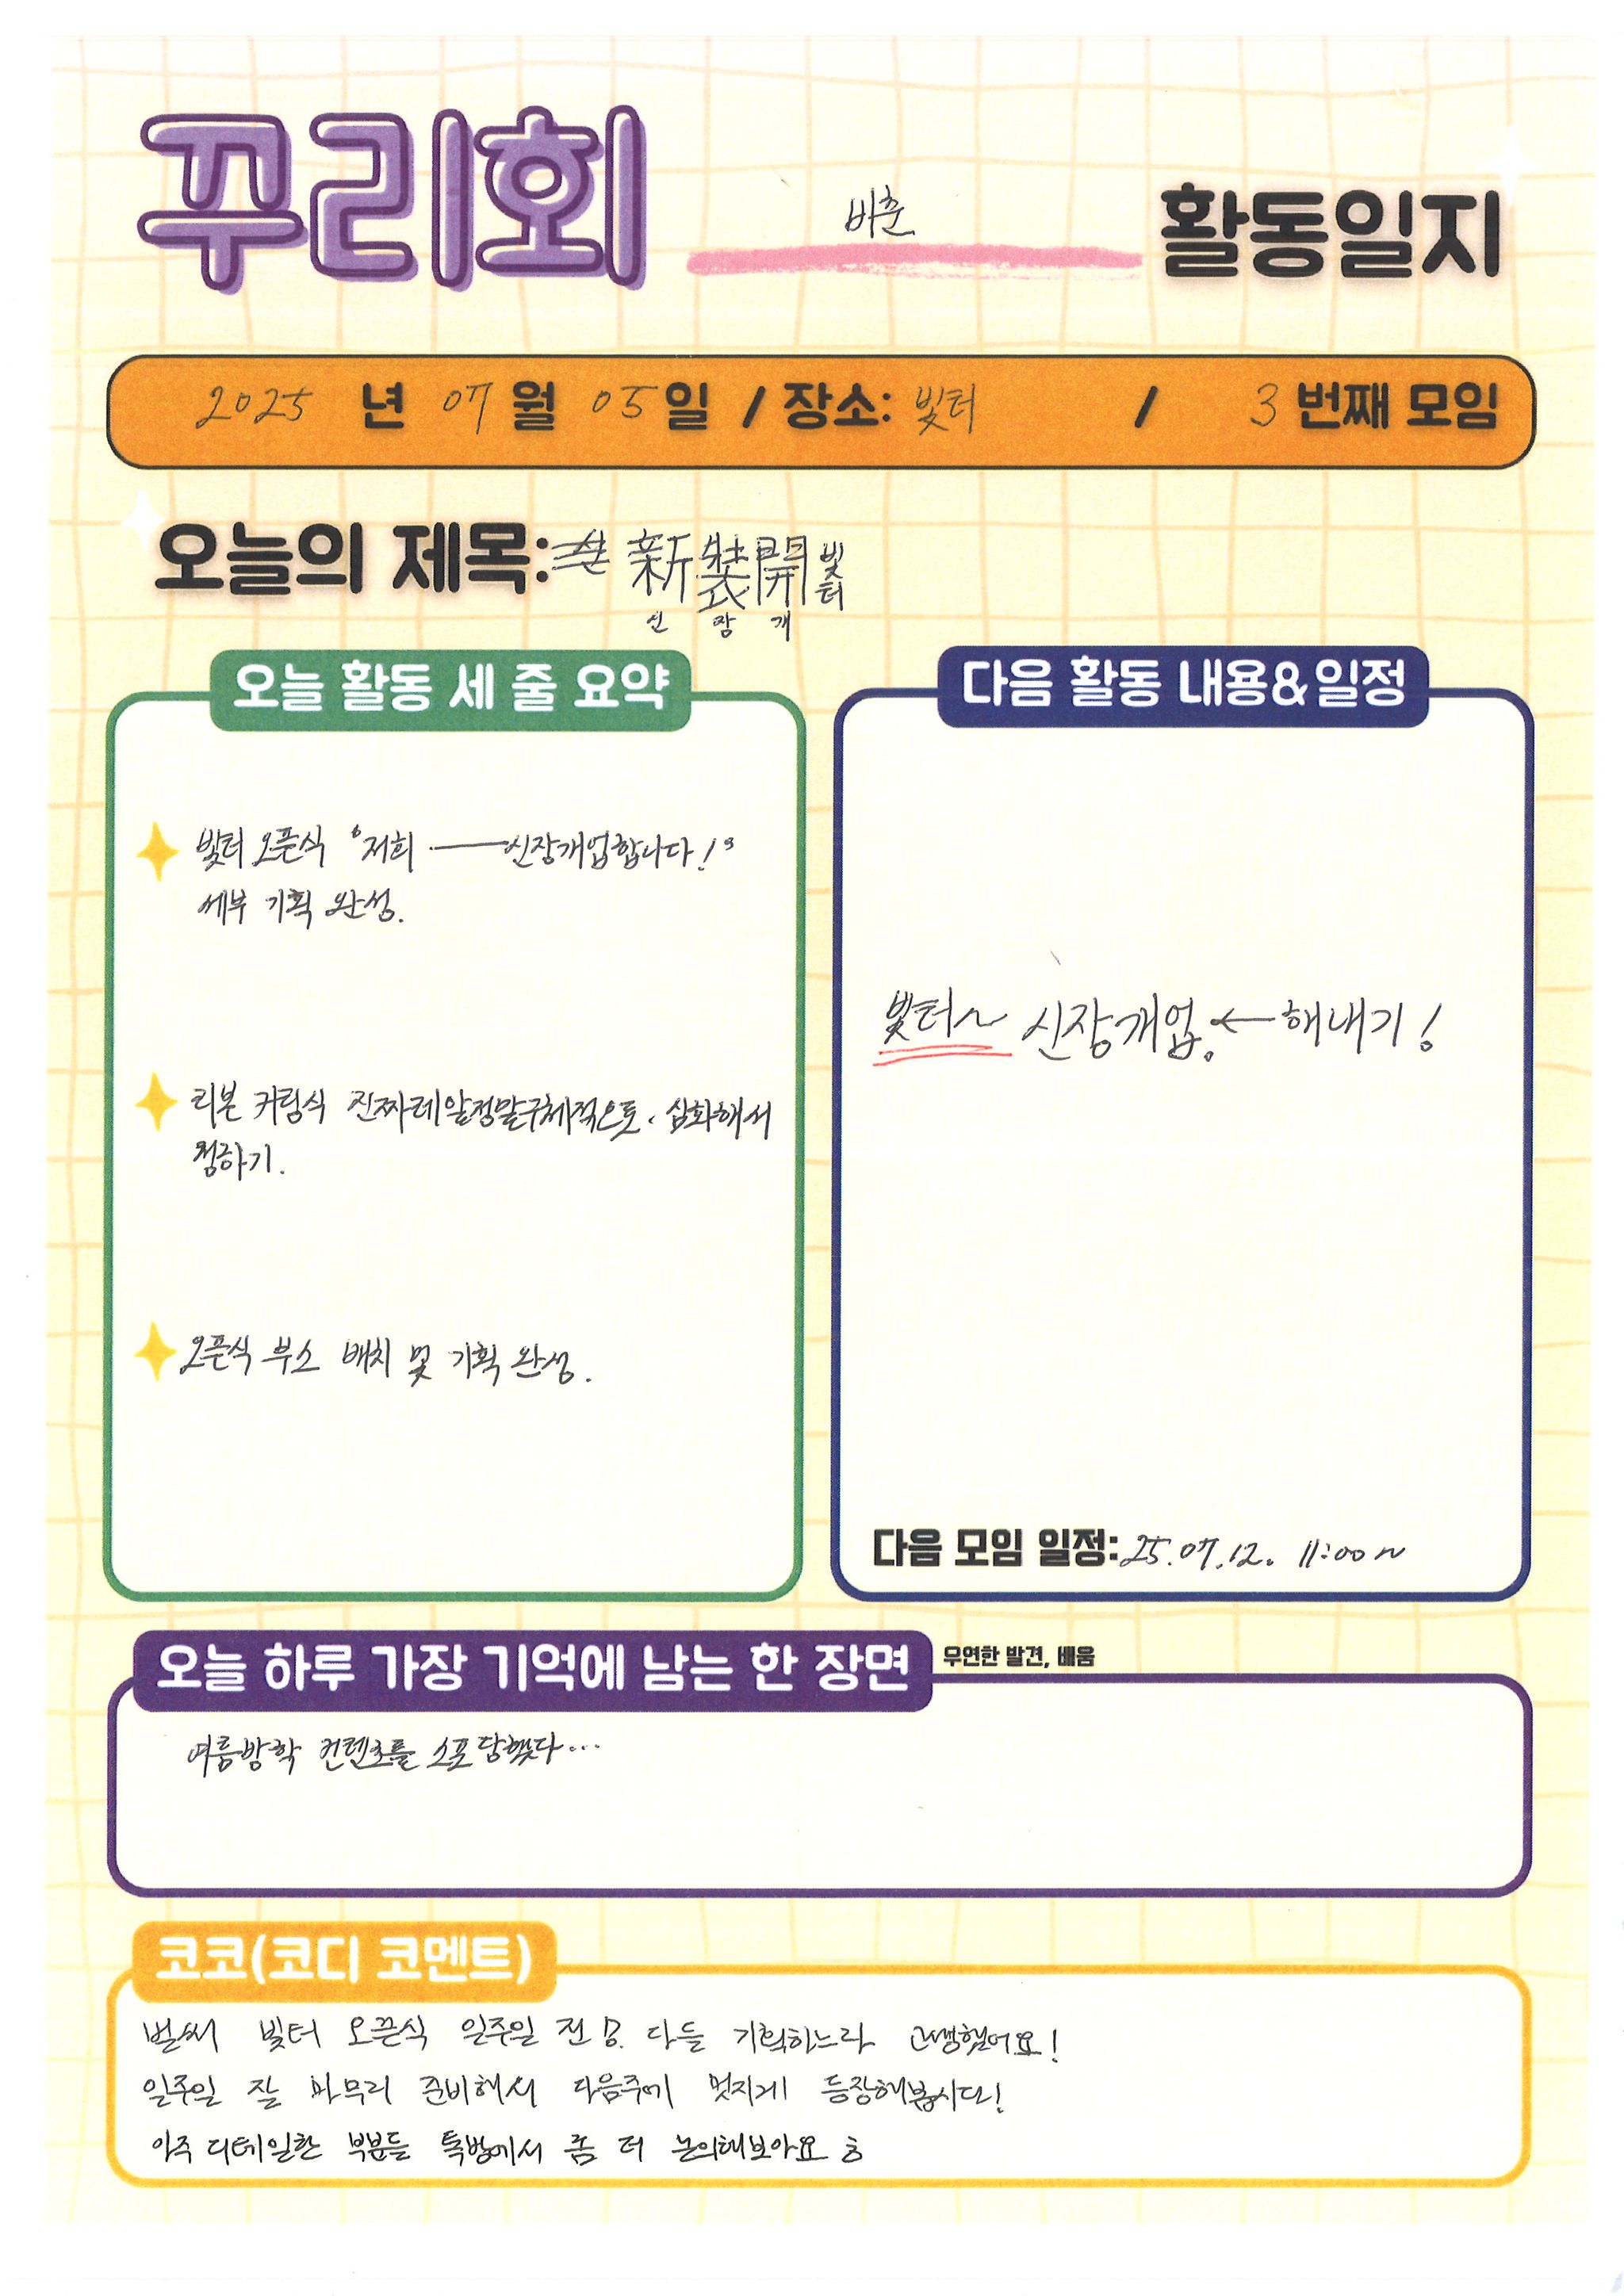 꾸리회 바춘 활동일지
2025 년 07 월 05 일 / 장소: 빛터 / 3 번째 모임
오늘의 제목: 新裝開빛터
신 장 개
오늘 활동 세 줄 요약
빛터 오픈식 "저희 ——신장개업합니다!"
세부 기획 완성.
리본 커팅식 진짜레알정말구체적으로. 심화해서
정하기.
오픈식 부스 배치 및 기획 완성.
다음 활동 내용&일정
빛터~ 신장개업. ← 해내기!
다음 모임 일정: 25.07.12. 11:00~
오늘 하루 가장 기억에 남는 한 장면 우연한 발견, 배움
여름방학 컨텐츠를 스포당했다...
코코(코디 코멘트)
벌써 빛터 오픈식 일주일 전! 다들 기획하느라 고생했어요!
일주일 잘 마무리 준비해서 다음주에 멋지게 등장해봅시다!
아주 디테일한 부분들 톡방에서 좀 더 논의해보아요 ㅎ